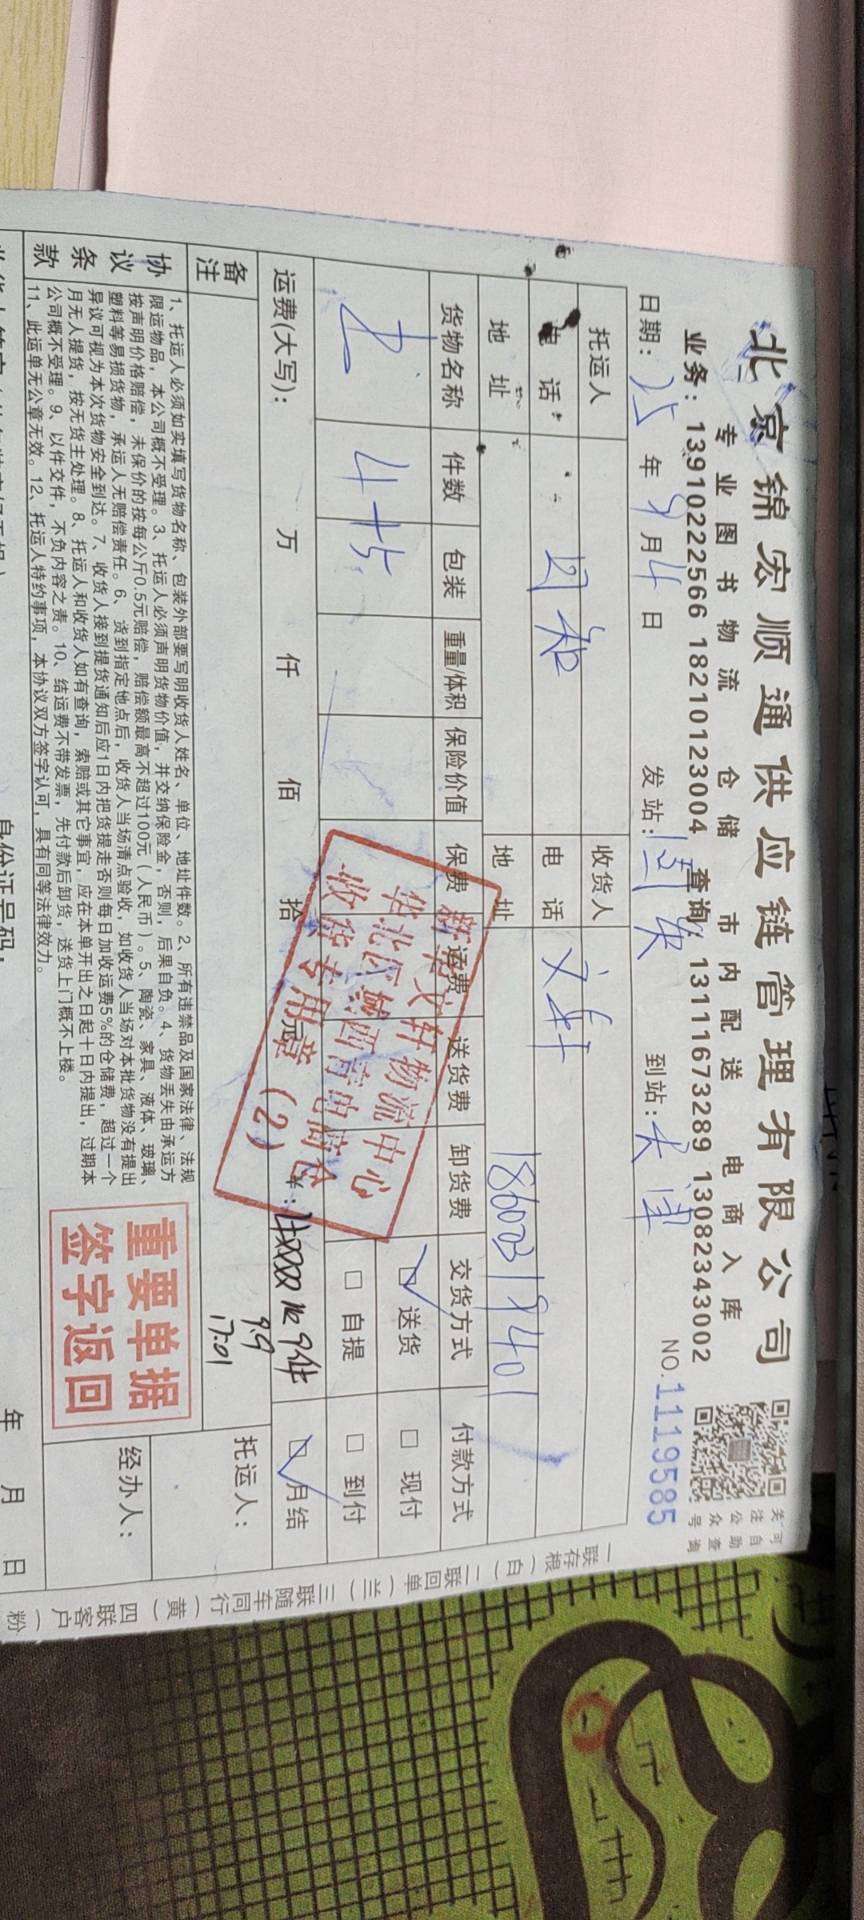 北京锦宏顺通供应链管理有限公司
关注公众号
可自助查询
专业图书物流 仓储 市内配送 电商入库
业务：13910222566 18210123004 查询：13111673289 13082343002
日期：25年9月4日 发站： 到站：天津 NO.1119585
托运人 收货人
电话 电话 文轩
地址 地址 18600319401
货物名称 件数 包装 重量/体积 保险价值 保费 运费 送货费 卸货费 交货方式 付款方式
4 件 送货 现付
自提 到付
运费(大写)： 万 仟 佰 拾 元 ¥： 9件 月结
新华文轩物流中心
收货专用章（2）
备注 9.9
17:01
托运人：
经办人：
协议条款
1、托运人必须如实填写货物名称、包装外部要写明收货人姓名、单位、地址件数。2、所有违禁品及国家法律、法规
限运物品，本公司概不受理。3、托运人必须声明货物价值，并交纳保险金，否则，后果自负。4、货物丢失由承运方
按声明价格赔偿，未保价的按每公斤0.5元赔偿，赔偿额最高不超过100元（人民币）。5、陶瓷、家具、液体、玻璃、
塑料等易损货物，承运人无赔偿责任。6、货到指定地点后，收货人当场清点验收，如收货人当场对本批货物没有提出
异议可视为本次货物安全到达。7、收货人接到提货通知后应1日内把货提走否则每日加收运费5%的仓储费，超过一个
月无人提货，按无货主处理。8、托运人和收货人如有查询，索赔或其它事宜，应在本单开出之日起十日内提出，过期本
公司概不受理。9、以件交件，不负内容之责。10、结运费不带发票，先付款后卸货，送货上门概不上楼。
11、此运单无公章无效。12、托运人特约事项，本协议双方签字认可，具有同等法律效力。
重要单据
签字返回
身份证号码： 年 月 日
一联存根（白） 二联回单（兰） 三联随车同行（黄） 四联客户（粉